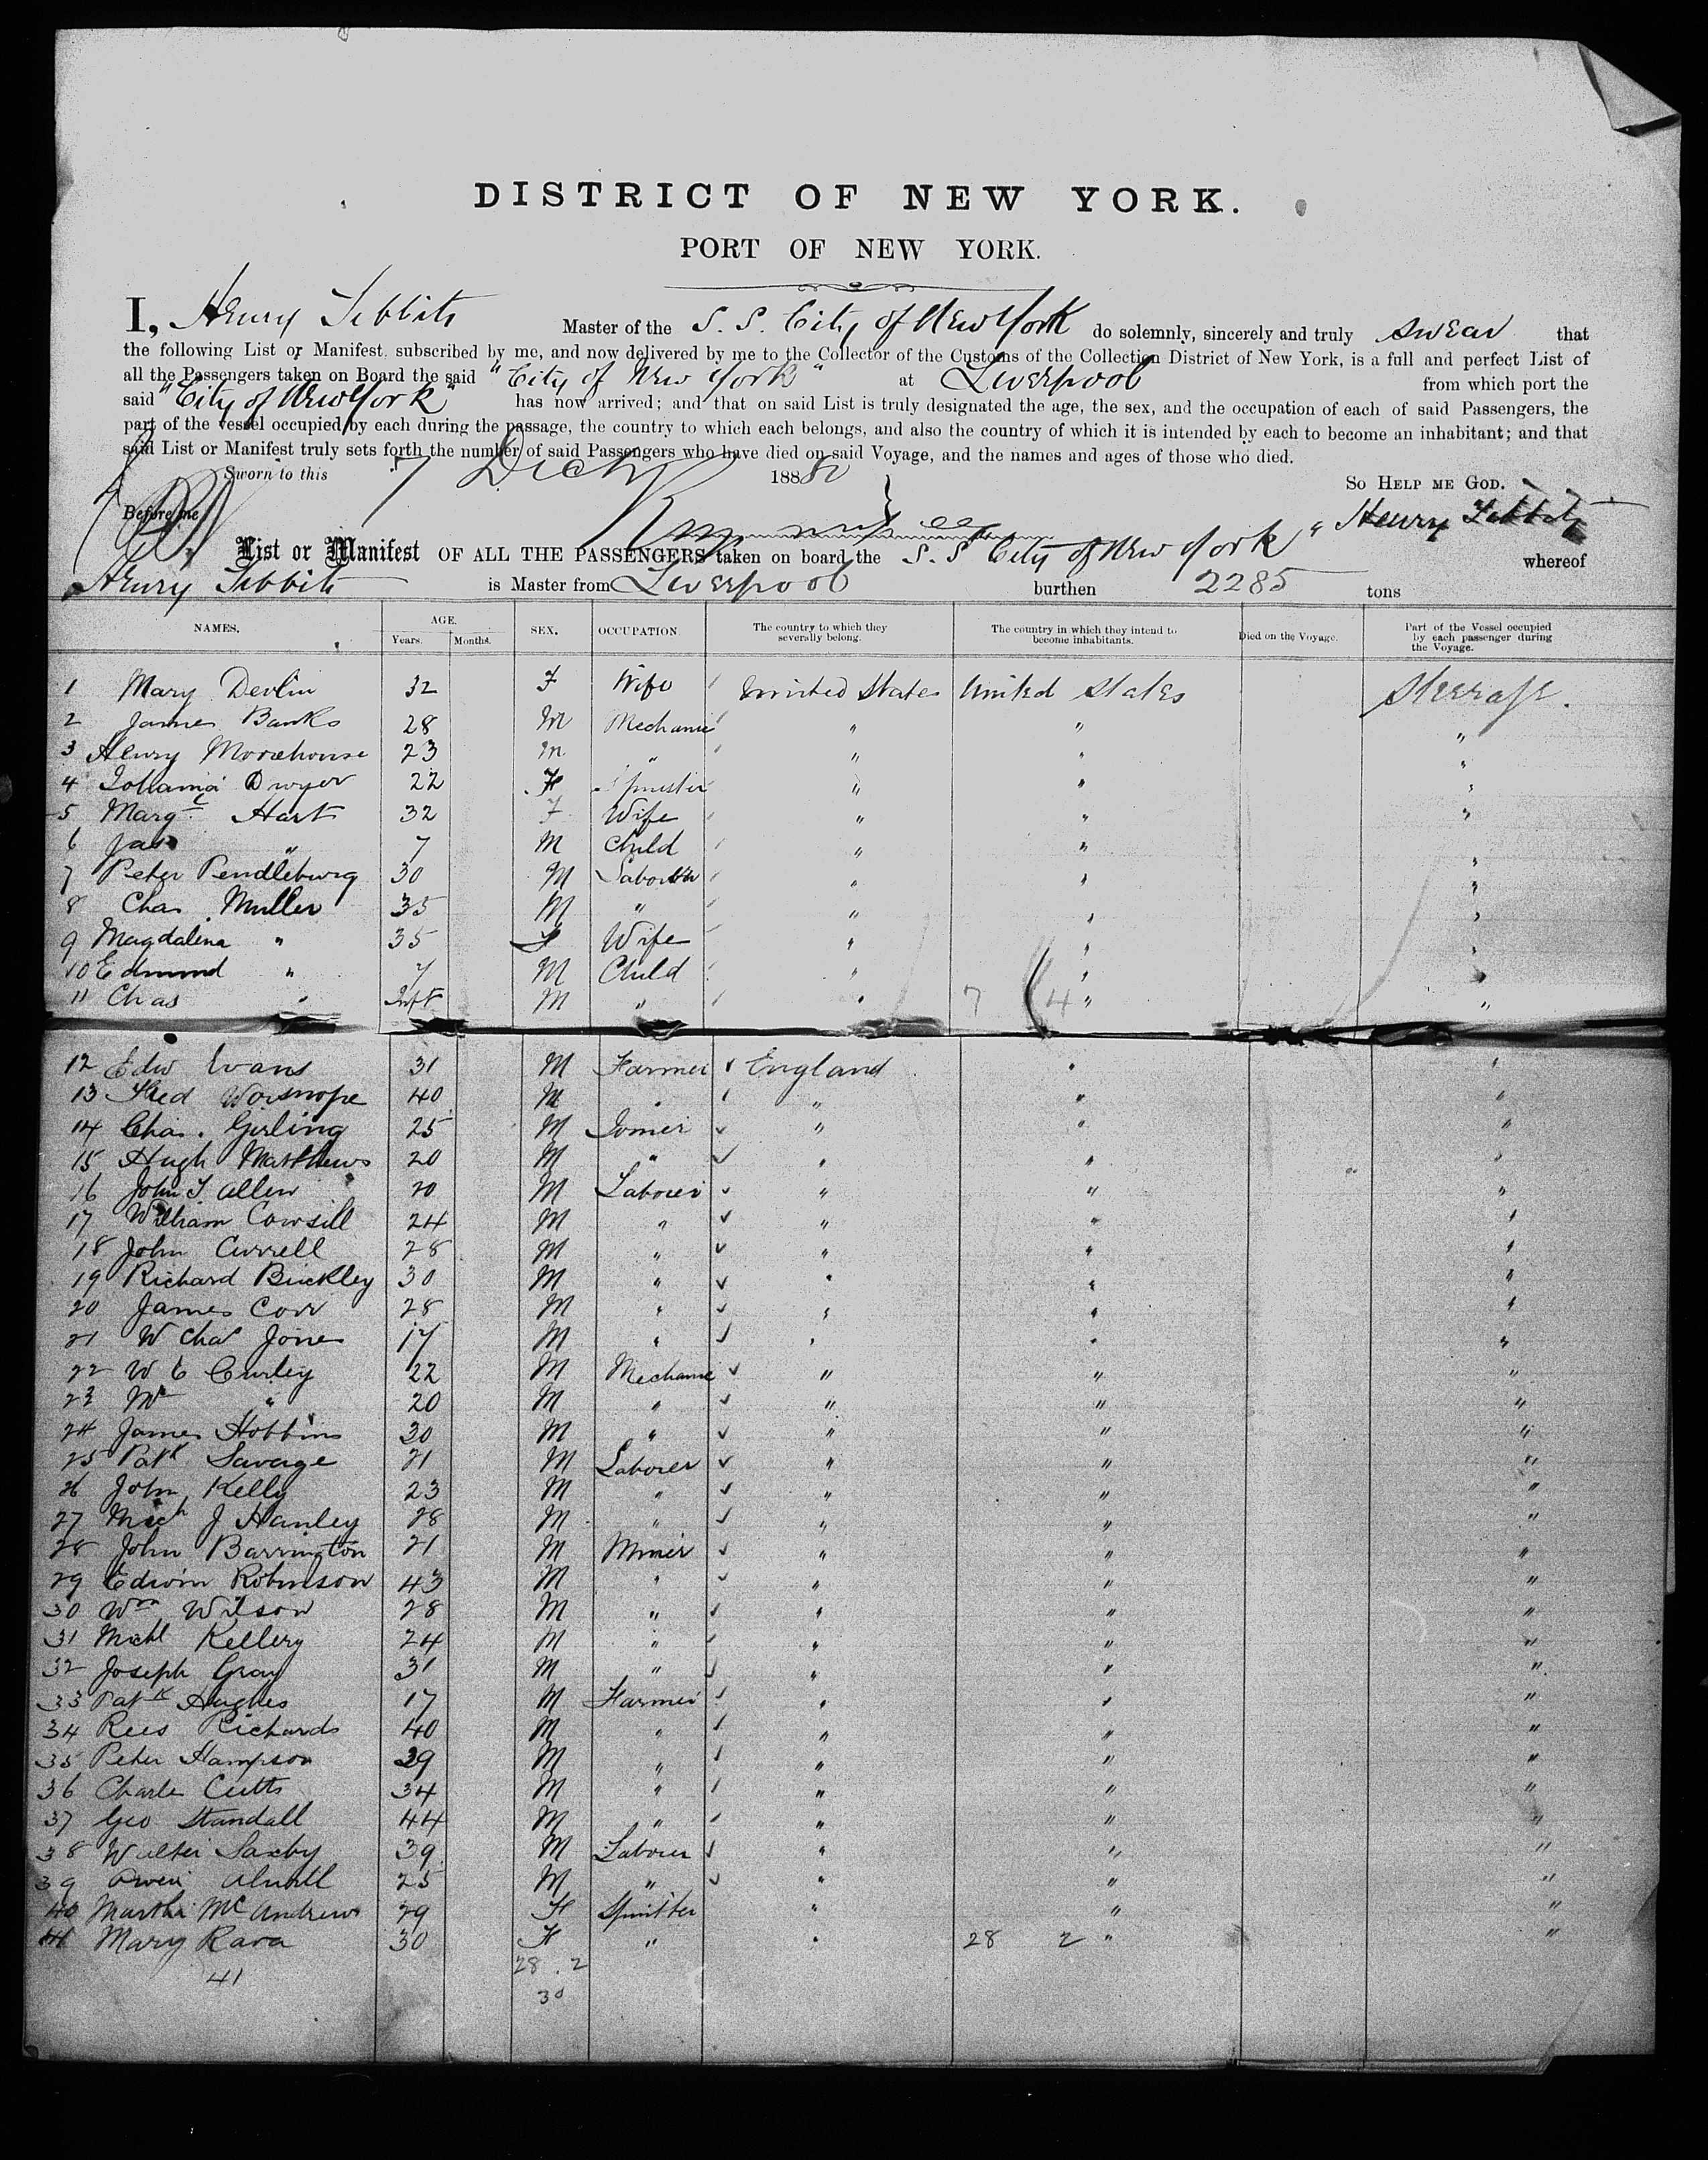 DISTRICT OF NEW YORK.
PORT OF NEW YORK.
I, Henry Tibbits Master of the S. S. City of New York do solemnly, sincerely and truly swear that
the following List or Manifest, subscribed by me, and now delivered by me to the Collector of the Customs of the Collection District of New York, is a full and perfect List of
all the Passengers taken on Board the said "City of New York" at Liverpool from which port the
said "City of New York" has now arrived; and that on said List is truly designated the age, the sex, and the occupation of each of said Passengers, the
part of the vessel occupied by each during the passage, the country to which each belongs, and also the country of which it is intended by each to become an inhabitant; and that
said List or Manifest truly sets forth the number of said Passengers who have died on said Voyage, and the names and ages of those who died.
Sworn to this 7 Decr 1880 So HELP ME GOD.
Before me Henry Tibbits
List or Manifest OF ALL THE PASSENGERS taken on board the S. S "City of New York" whereof
Henry Tibbits is Master from Liverpool burthen 2285 tons
NAMES. AGE. Years. Months. SEX. OCCUPATION. The country to which they severally belong. The country in which they intend to become inhabitants. Died on the Voyage. Part of the Vessel occupied by each passenger during the Voyage.
1 Mary Devlin 32 F Wife United States United States Steerage.
2 James Banks 28 M Mechanic " " "
3 Henry Moorehouse 23 M " " " "
4 Johanna Dwyer 22 F Spinster " " "
5 Margt Hart 32 F Wife " " "
6 Jas " 7 M Child " " "
7 Peter Pendlebury 30 M Laborer " " "
8 Chas Muller 35 M " " " "
9 Magdalena " 35 F Wife " " "
10 Edmund " 7 M Child " " "
11 Chas " Inft M " " 7 4 " "
12 Edw Evans 31 M Farmer England " "
13 Fred Worsnope 40 M " " " "
14 Chas. Girling 25 M Joiner " " "
15 Hugh Matthews 20 M " " " "
16 John T Allen 20 M Laborer " " "
17 William Cowsill 24 M " " " "
18 John Currell 28 M " " " "
19 Richard Buckley 30 M " " " "
20 James Corr 28 M " " " "
21 W Chas Jones 17 M " " " "
22 W C Curley 22 M Mechanic " " "
23 Wm " 20 M " " " "
24 James Hobbins 30 M " " " "
25 Patk Savage 21 M Laborer " " "
26 John Kelly 23 M " " " "
27 Mich J Hanley 28 M " " " "
28 John Barrington 21 M Miner " " "
29 Edwin Robinson 43 M " " " "
30 Wm Wilson 28 M " " " "
31 Michl Kellery 24 M " " " "
32 Joseph Gray 31 M " " " "
33 Patk Hughes 17 M Farmer " " "
34 Rees Richards 40 M " " " "
35 Peter Hampson 39 M " " " "
36 Charles Cutts 34 M " " " "
37 Geo Standall 44 M " " " "
38 Walter Saxby 39 M Laborer " " "
39 Owen 25 M " " " "
40 Martha McAndrews 29 F Spinster " " "
41 Mary Rara 30 F " " 28 2 " "
41 28 . 2
30